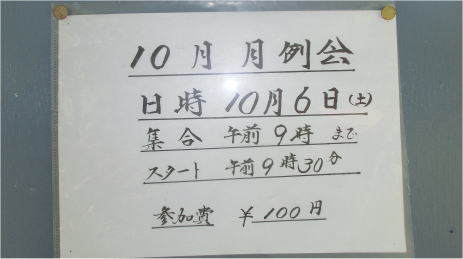 10月 月例会
日時 10月6日(土)
集合 午前9時 まで
スタート 午前9時30分
参加費 ¥100円